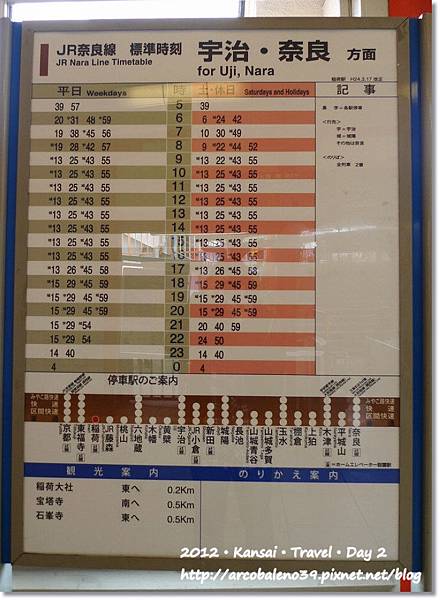 JR奈良線 標準時刻 宇治・奈良 方面
JR Nara Line Timetable for Uji, Nara
稲荷駅 H24.3.17 改正
平日 Weekdays 時 土・休日 Saturdays and Holidays 記事
39 57 5 39
20 *31 48 *59 6 6 *24 42
19 38 *45 56 7 10 30 *49
*19 28 *42 57 8 9 *22 *44 52
*13 25 *43 55 9 *13 22 *43 55
*13 25 *43 55 10 *13 25 *43 55
*13 25 *43 55 11 *13 25 *43 55
*13 25 *43 55 12 *13 25 *43 55
*13 25 *43 55 13 *13 25 *43 55
*13 25 *43 55 14 *13 25 *43 55
*13 25 *43 55 15 *13 25 *43 55
*13 25 *43 55 16 *13 25 *43 55
*13 26 *45 58 17 *13 26 *43 58
*13 26 *45 58 18 *13 26 *45 58
*15 29 *45 *59 19 *15 29 *45 *59
15 *29 45 *59 20 15 *29 45 *59
15 *29 *54 21 20 40 59
15 *29 *54 22 24 50
14 40 23 14 40
4 0 4
<行先>
宇＝宇治
城＝城陽
その他は奈良
<のりば>
全列車 2番
停車駅のご案内
みやこ路快速
快速
区間快速
京都
東福寺
稲荷
JR藤森
桃山
六地蔵
木幡
黄檗
宇治
JR小倉
新田
城陽
長池
山城青谷
山城多賀
玉水
棚倉
上狛
木津
平城山
奈良
みやこ路快速
快速
区間快速
＝ホームエレベーター設置駅
観光案内 のりかえ案内
稲荷大社 東へ 0.2Km
宝塔寺 南へ 0.5Km
石峯寺 東へ 0.5Km
2012・Kansai・Travel・Day 2
http://arcobaleno39.pixnet.net/blog